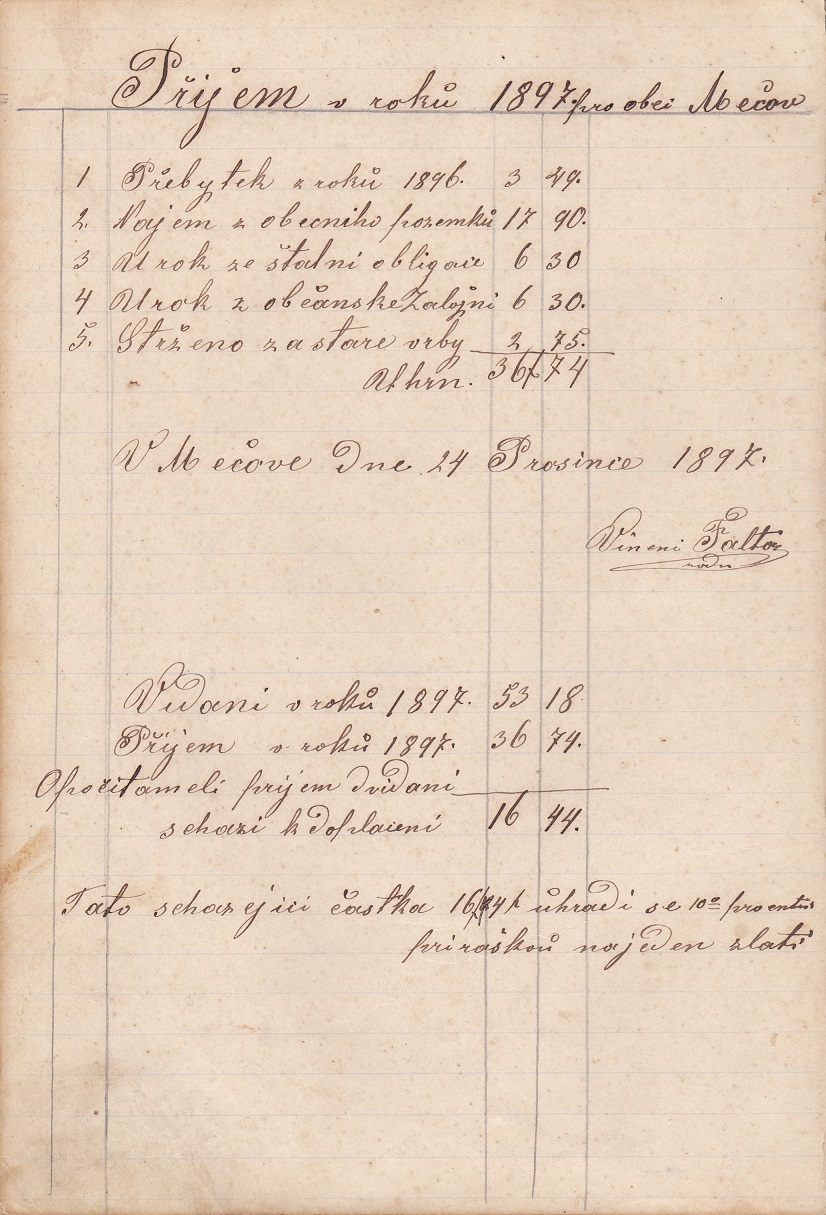 Přijem v roků 1897 pro obci Mečov
1 Přebytek z roků 1896. 3 49.
2. Najem z obecniho pozemků 17 90.
3 Urok ze štatni obligacie 6 30
4 Urok z občanske Založni 6 30.
5. Strženo za stare vrby 2 75.
Uhrn. 36 74
V Mečove Dne 24 Prosince 1897.
Faltor
Vidani v roků 1897. 53 18
Přijem v roků 1897. 36 74.
Opočitameli prijem dvidani
schazi k doplaceni 16 44.
Tato schazejici častka 16 44 k ůhradi se 10% procentni
priraškoů na jeden zlati